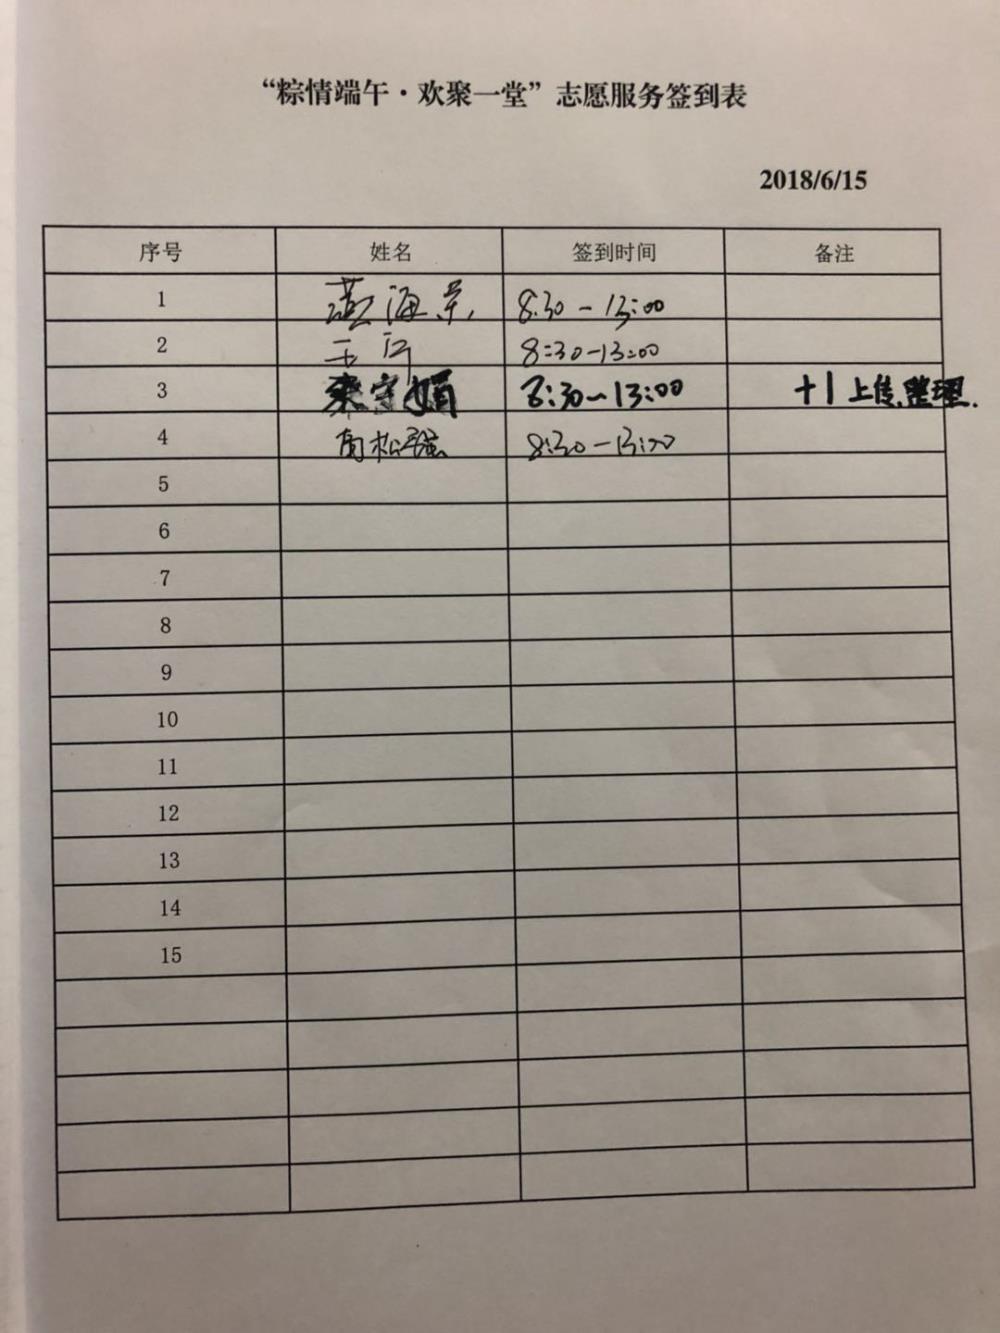 “粽情端午·欢聚一堂”志愿服务签到表
2018/6/15
序号 姓名 签到时间 备注
1 黄海荣 8:30-13:00
2 8:30-13:00
3 8:30-13:00 +1上传、整理.
4 8:30-13:00
5
6
7
8
9
10
11
12
13
14
15